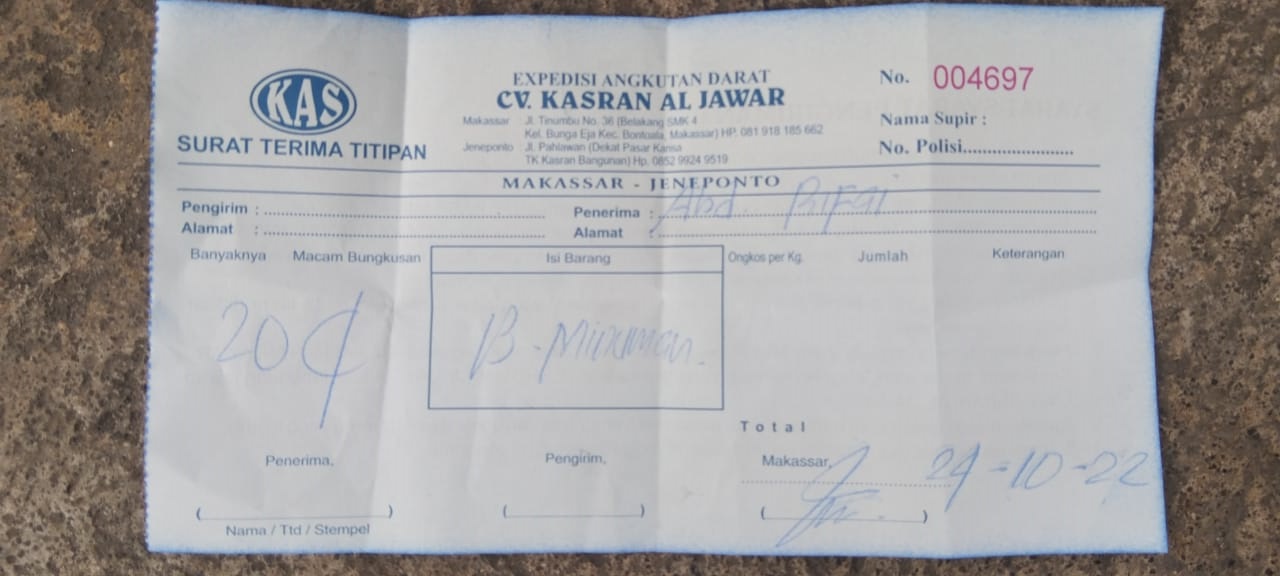 KAS
SURAT TERIMA TITIPAN
EXPEDISI ANGKUTAN DARAT
CV. KASRAN AL JAWAR
Makassar : Jl. Tinumbu No. 36 (Belakang SMK 4
Kel. Bunga Eja Kec. Bontoala, Makassar) HP. 081 918 185 662
Jeneponto : Jl. Pahlawan (Dekat Pasar Karisa
TK Kasran Bangunan) Hp. 0852 9924 9519
No. 004697
Nama Supir :
No. Polisi......................
MAKASSAR - JENEPONTO
Pengirim :
Alamat :
Penerima : Abd. Rifai
Alamat :
Banyaknya Macam Bungkusan Isi Barang Ongkos per Kg. Jumlah Keterangan
20 B. Minuman.
Total
Penerima, Pengirim, Makassar, 24-10-22
( ) ( ) ( )
Nama / Ttd / Stempel